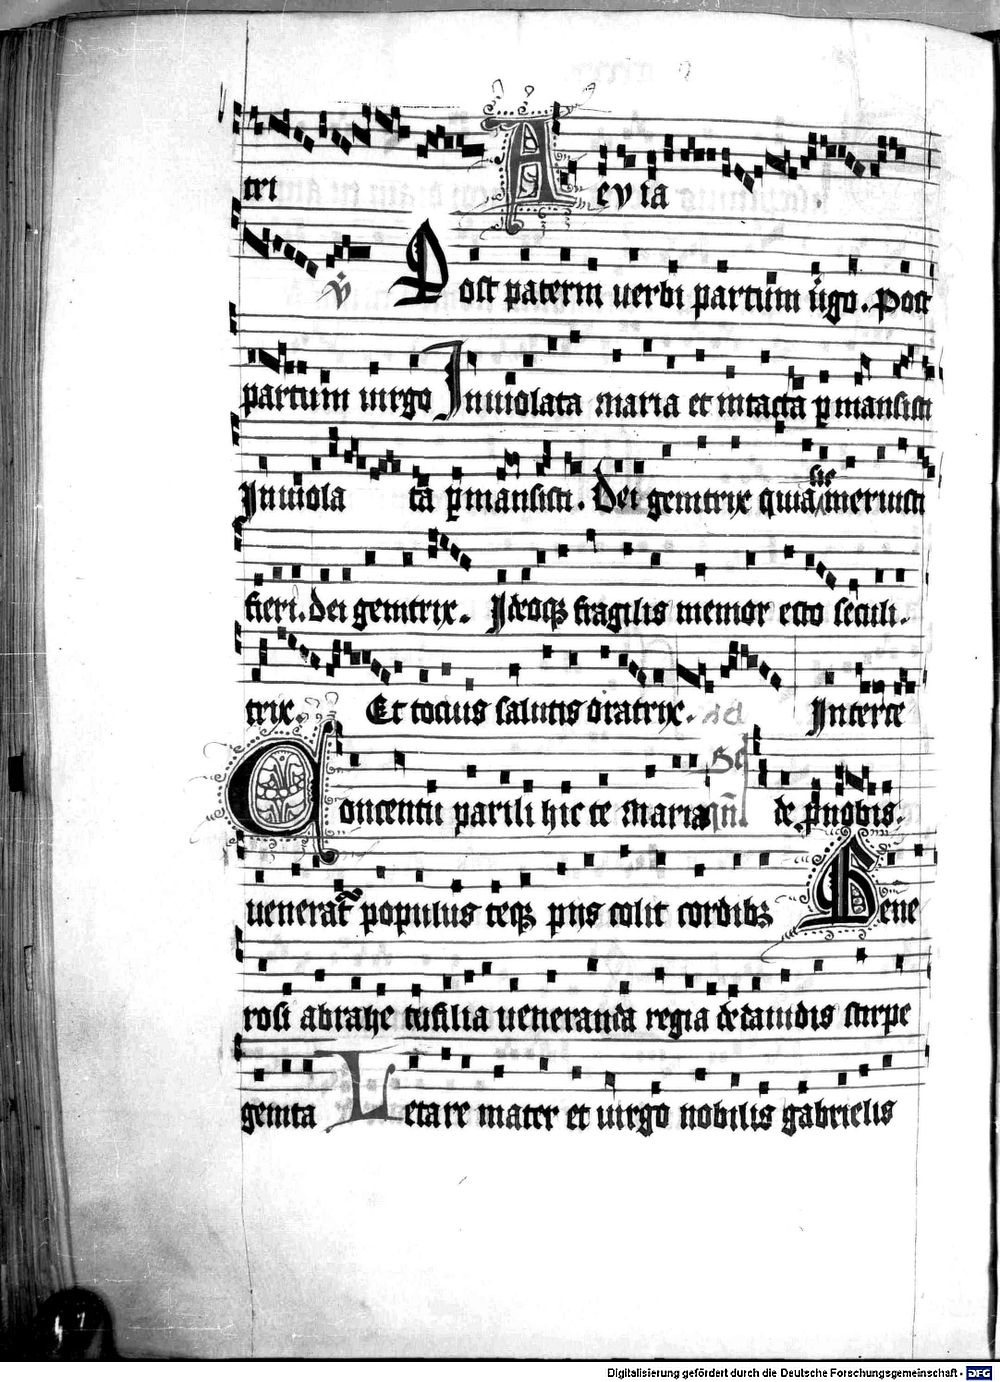 tri Aeuia
℣ Post paterni uerbi partum ūgo. Post
partum uirgo Inuiolata maria et intacta ꝑmansisti
Inuiola ta ꝑmansisti. Dei genitrix quia sic meruisti
fieri. dei genitrix. Ideoqꝫ fragilis memor esto seculi.
trix. Et tocius salutis oratrix. Interce
Concentu parili hic te Maria de p̄ nobis.
ueneratr̄ populus teqꝫ pijs colit cordibꝫ Gene
rosi abrahe tu filia ueneranda regia de dauidis stirpe
genita Letare mater et uirgo nobilis gabrielis
Digitalisierung gefördert durch die Deutsche Forschungsgemeinschaft - DFG